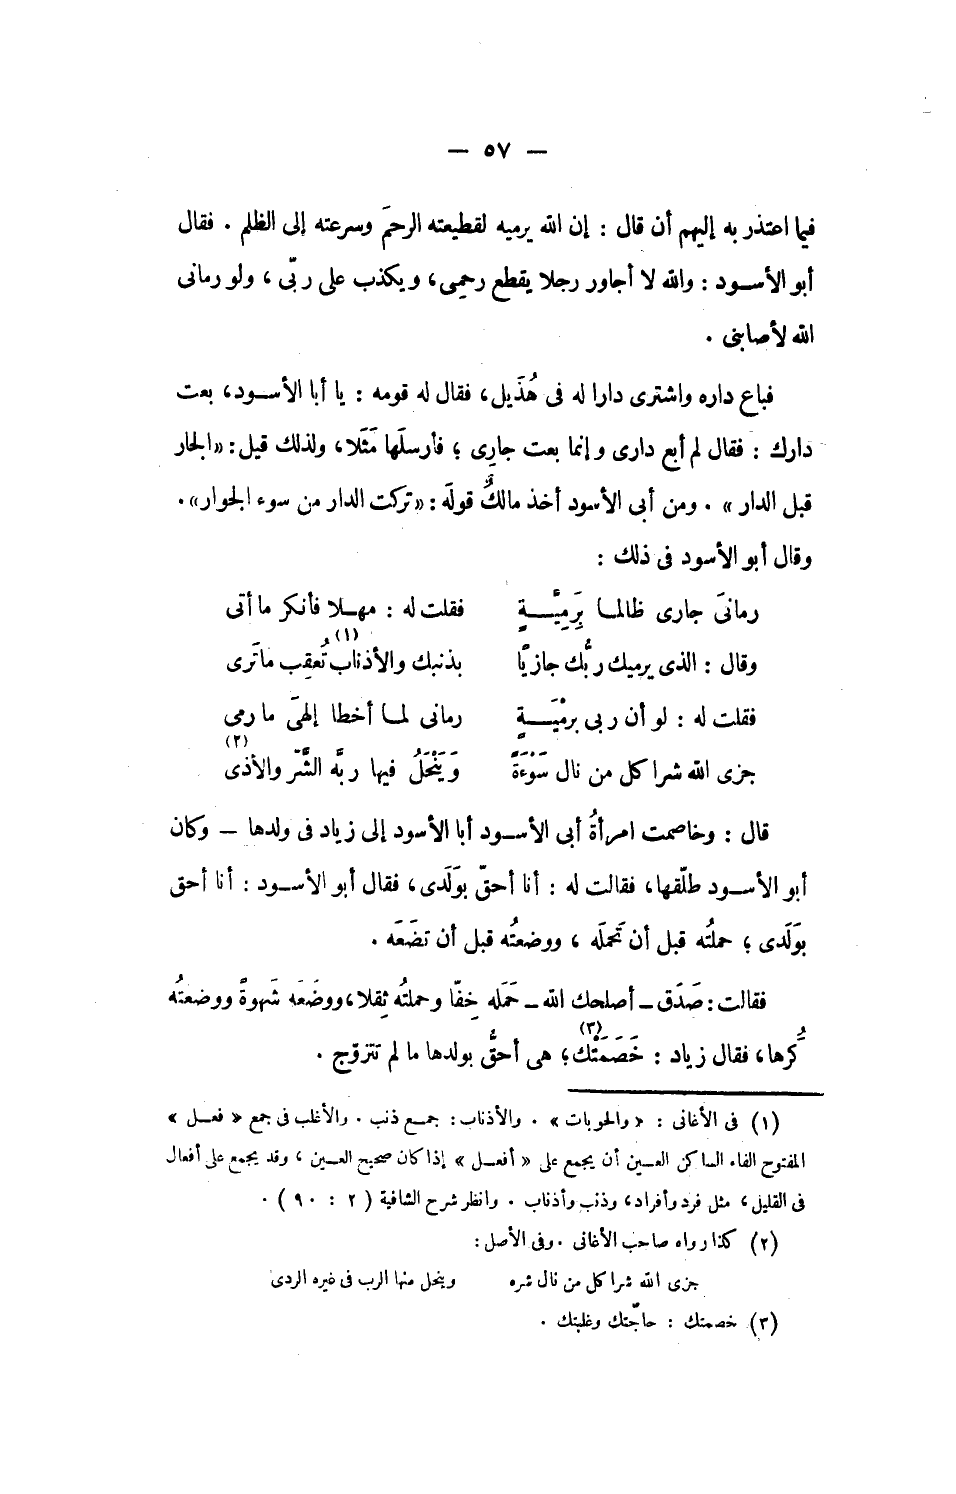 — ٥٧ —
فيما اعتذر به إليهم أن قال : إن الله يرميه لقطيعته الرحمَ وسرعته إلى الظلم . فقال
أبو الأسـود : والله لا أجاور رجلا يقطع رحمِى، ويكذب على ربّى ، ولو رمانى
الله لأصابنى .
فباع داره واشترى دارا له فى هُذَيل، فقال له قومه : يا أبا الأسـود، بعت
دارك : فقال لم أبع دارى وإنما بعت جارِى ؛ فأرسلَها مَثَلا، ولذلك قيل: «الجار
قبل الدار » . ومن أبى الأسود أخذ مالكٌ قولَه : «تركت الدار من سوء الجوار».
وقال أبو الأسود فى ذلك :
رمانىَ جارى ظالمـا بِرَمِيَّـــةٍ فقلت له : مهـلا فأنكر ما أتى
وقال : الذى يرميك ربُّك جازيًا بذنبك والأذناب (١) تُعقِب ماتَرى
فقلت له : لو أن ربى برمْيَـــةٍ رمانى لمـا أخطا إلهىَ ما رمى
جزى الله شرا كل من نال سَوْءَةً وَيَنْحَلُ فيها ربَّه الشَّرّ والأذى (٢)
قال : وخاصمت امرأةُ أبى الأسـود أبا الأسود إلى زياد فى ولدها – وكان
أبو الأسـود طلّقها، فقالت له : أنا أحقّ بوَلَدى، فقال أبو الأسـود : أنا أحق
بوَلَدى ؛ حملتُه قبل أن تَحمله ، ووضعتُه قبل أن تضَعَه .
فقالت : صَدَق ــ أصلحك الله ــ حَمَله خِفّا وحملتُه ثِقلا، ووضَعَه شَهوةً ووضعتُه
كُرها، فقال زياد : خَصَمَتْك (٣)؛ هى أحقُّ بولدها ما لم تتزوّج .
(١) فى الأغانى : «والحوبات» . والأذناب : جمـع ذنب . والأغلب فى جمع « فعـل »
المفتوح الفاء الساكن العـين أن يجمع على « أفعـل » إذا كان صحيح العـين ، وقد يجمع على أفعال
فى القليل ، مثل فرد وأفراد، وذنب وأذناب . وانظر شرح الشافية ( ٢ : ٩٠ ) .
(٢) كذا رواه صاحب الأغانى . وفى الأصل :
جزى الله شرا كل من نال شره وينحل منها الرب فى غيره الردى
(٣) خصمتك : حاجّتك وغلبتك .